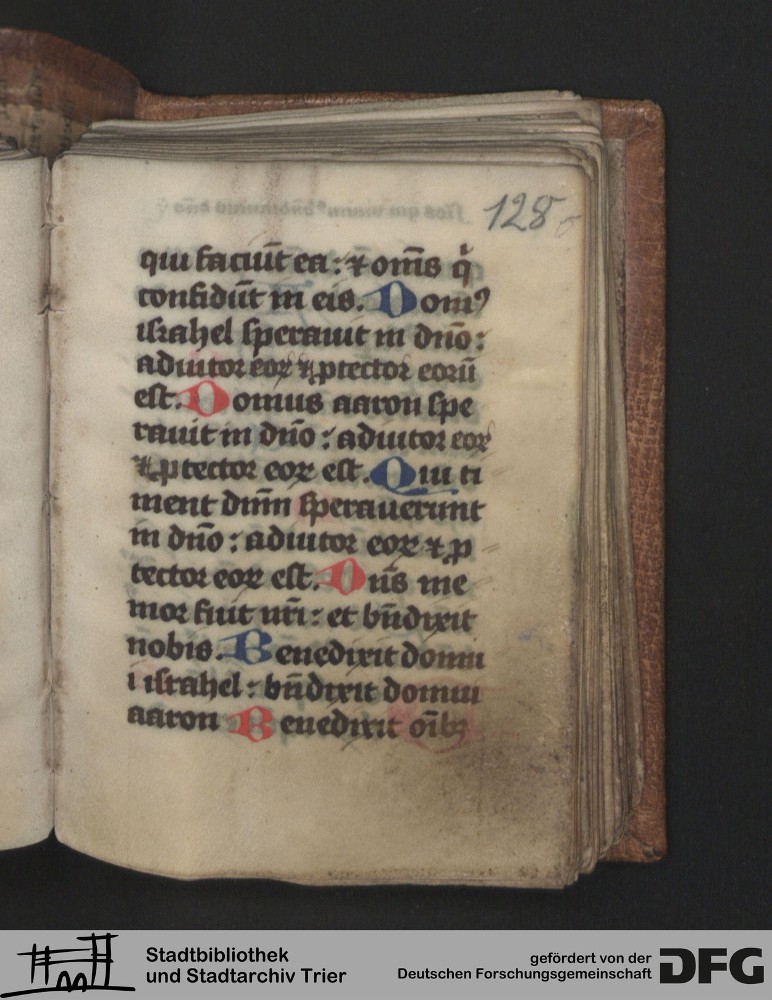 128
qui faciūt ea : ⁊ om̄s q̇
confidūt in eis. Domꝰ
israhel sperauit in dn̄o :
adiutor eoꝝ ⁊ ꝓtector eorū
est. Domus aaron spe
rauit in dn̄o : adiutor eoꝝ
⁊ ꝓtector eoꝝ est. Qui ti
ment dn̄m sperauerunt
in dn̄o : adiutor eoꝝ ⁊ ꝓ
tector eoꝝ est. Dn̄s me
mor fuit nr̄i : et bn̄dixit
nobis. Benedixit domu
i israhel : bn̄dixit domui
aaron Benedixit oībꝫ
Stadtbibliothek
und Stadtarchiv Trier
gefördert von der
Deutschen Forschungsgemeinschaft
DFG